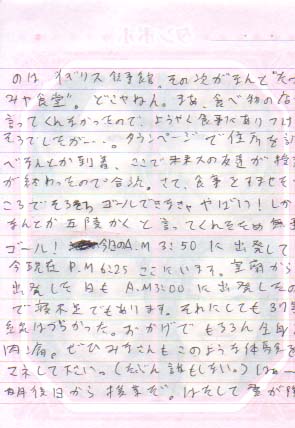 のは イギリス食事館、その次がなんと"たつ
みや食堂"。どこやねん。まあ、食べ物の店
言ってくれたがったので、ようやく食事にありつけ
そうでしたが…。タウンページで住所を調
べなんとか到着、ここで 友達が授
が終わったので合流。さて、食事をすませそ
ころでそろそろ ゴールできなきゃやばい！しか
なんとか五陵かくと言ってくれたため無事
ゴール！ 今日のA.M 3:50 に出発して
今現在 P.M 6:25 ここにいます。室蘭から
出発した日も A.M3:00 に出発したの
で寝不足でもあります。それにしても
はつらかった。おかげで もちろん全身
肉痛。ぜひみなさんもこのような体験を
マネして下さい。(たぶん誰もしない。) はぁー
明後日から授業だ。はたして 雪が降